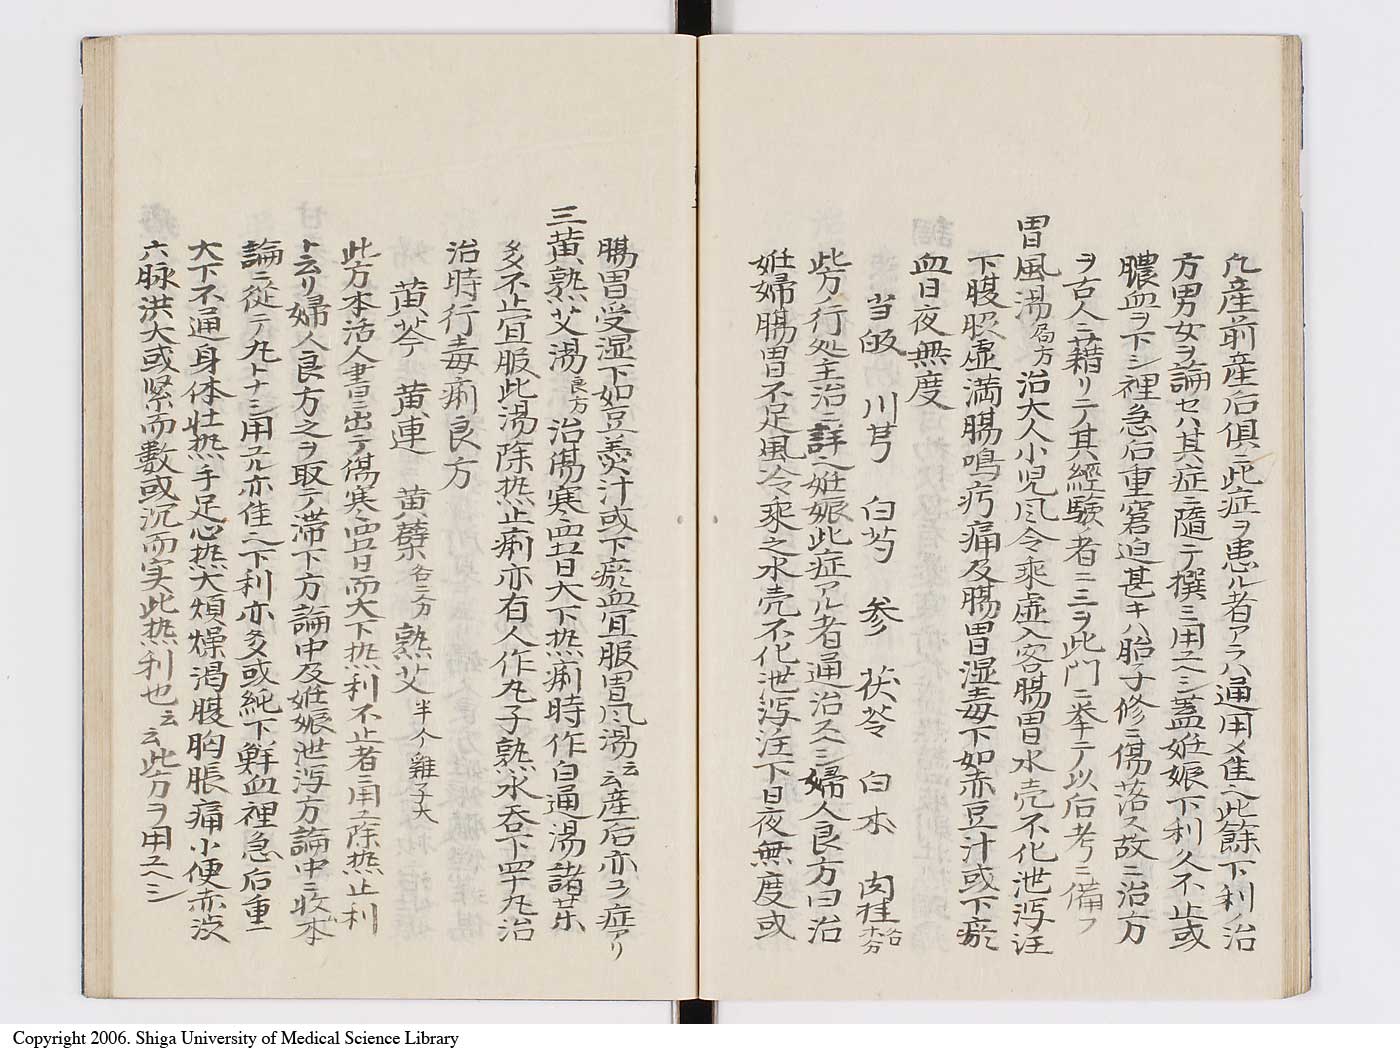 凡産前産后俱ニ此症ヲ患ル者アラハ通用メ隹シ此餘下利ノ治
方男女ヲ論セハ其症ニ隨テ撰ミ用ユヘシ蓋姙娠下利久不止或
膿血ヲ下シ裡急后重窘迫甚キハ胎子修ニ傷落ス故ニ治方
ヲ古人ニ藉リテ其經驗ノ者二三ヲ此門ニ挙テ以后考ニ備フ
胃風湯局方治大人小児风冷乘虚入客腸胃水壳不化泄泻注
下腹脹虚満腸鳴疞痛及腸胃湿毒下如赤豆汁或下瘀
血日夜無度
当皈 川芎 白芍 参 茯苓 白朮 肉桂各等分
此方ノ行処主治ニ詳也姙娠此症アル者通治スヘシ婦人良方曰治
姙婦腸胃不足風冷乘之水壳不化泄泻注下日夜無度或
腸胃受湿下如豆羹汁或下瘀血宜服胃风湯云云産后亦コノ症アリ
三黄熟艾湯良方治傷寒四五日大下热痢時作白通湯諸藥
多不止宜服此湯除热止痢亦有人作丸子熟水吞下四十丸治
治時行毒痢良方
黄芩 黄連 黄蘗各三分 熟艾半个雞子大
此方本活人書ニ出テ傷寒四五日而大下热利不止者ニ用ユ除热止利
ト云リ婦人良方之ヲ取テ滞下方論中及姙娠泄泻方論中ニ收本
論ニ從テ丸トナシ用ユル亦佳也下利亦多或純下鮮血裡急后重
大下不通身体壮热手足心热大煩燥渇腹胸脹痛小便赤渋
六脉洪大或緊而數或沉而実此热利也云云此方ヲ用ユヘシ
Copyright 2006. Shiga University of Medical Science Library